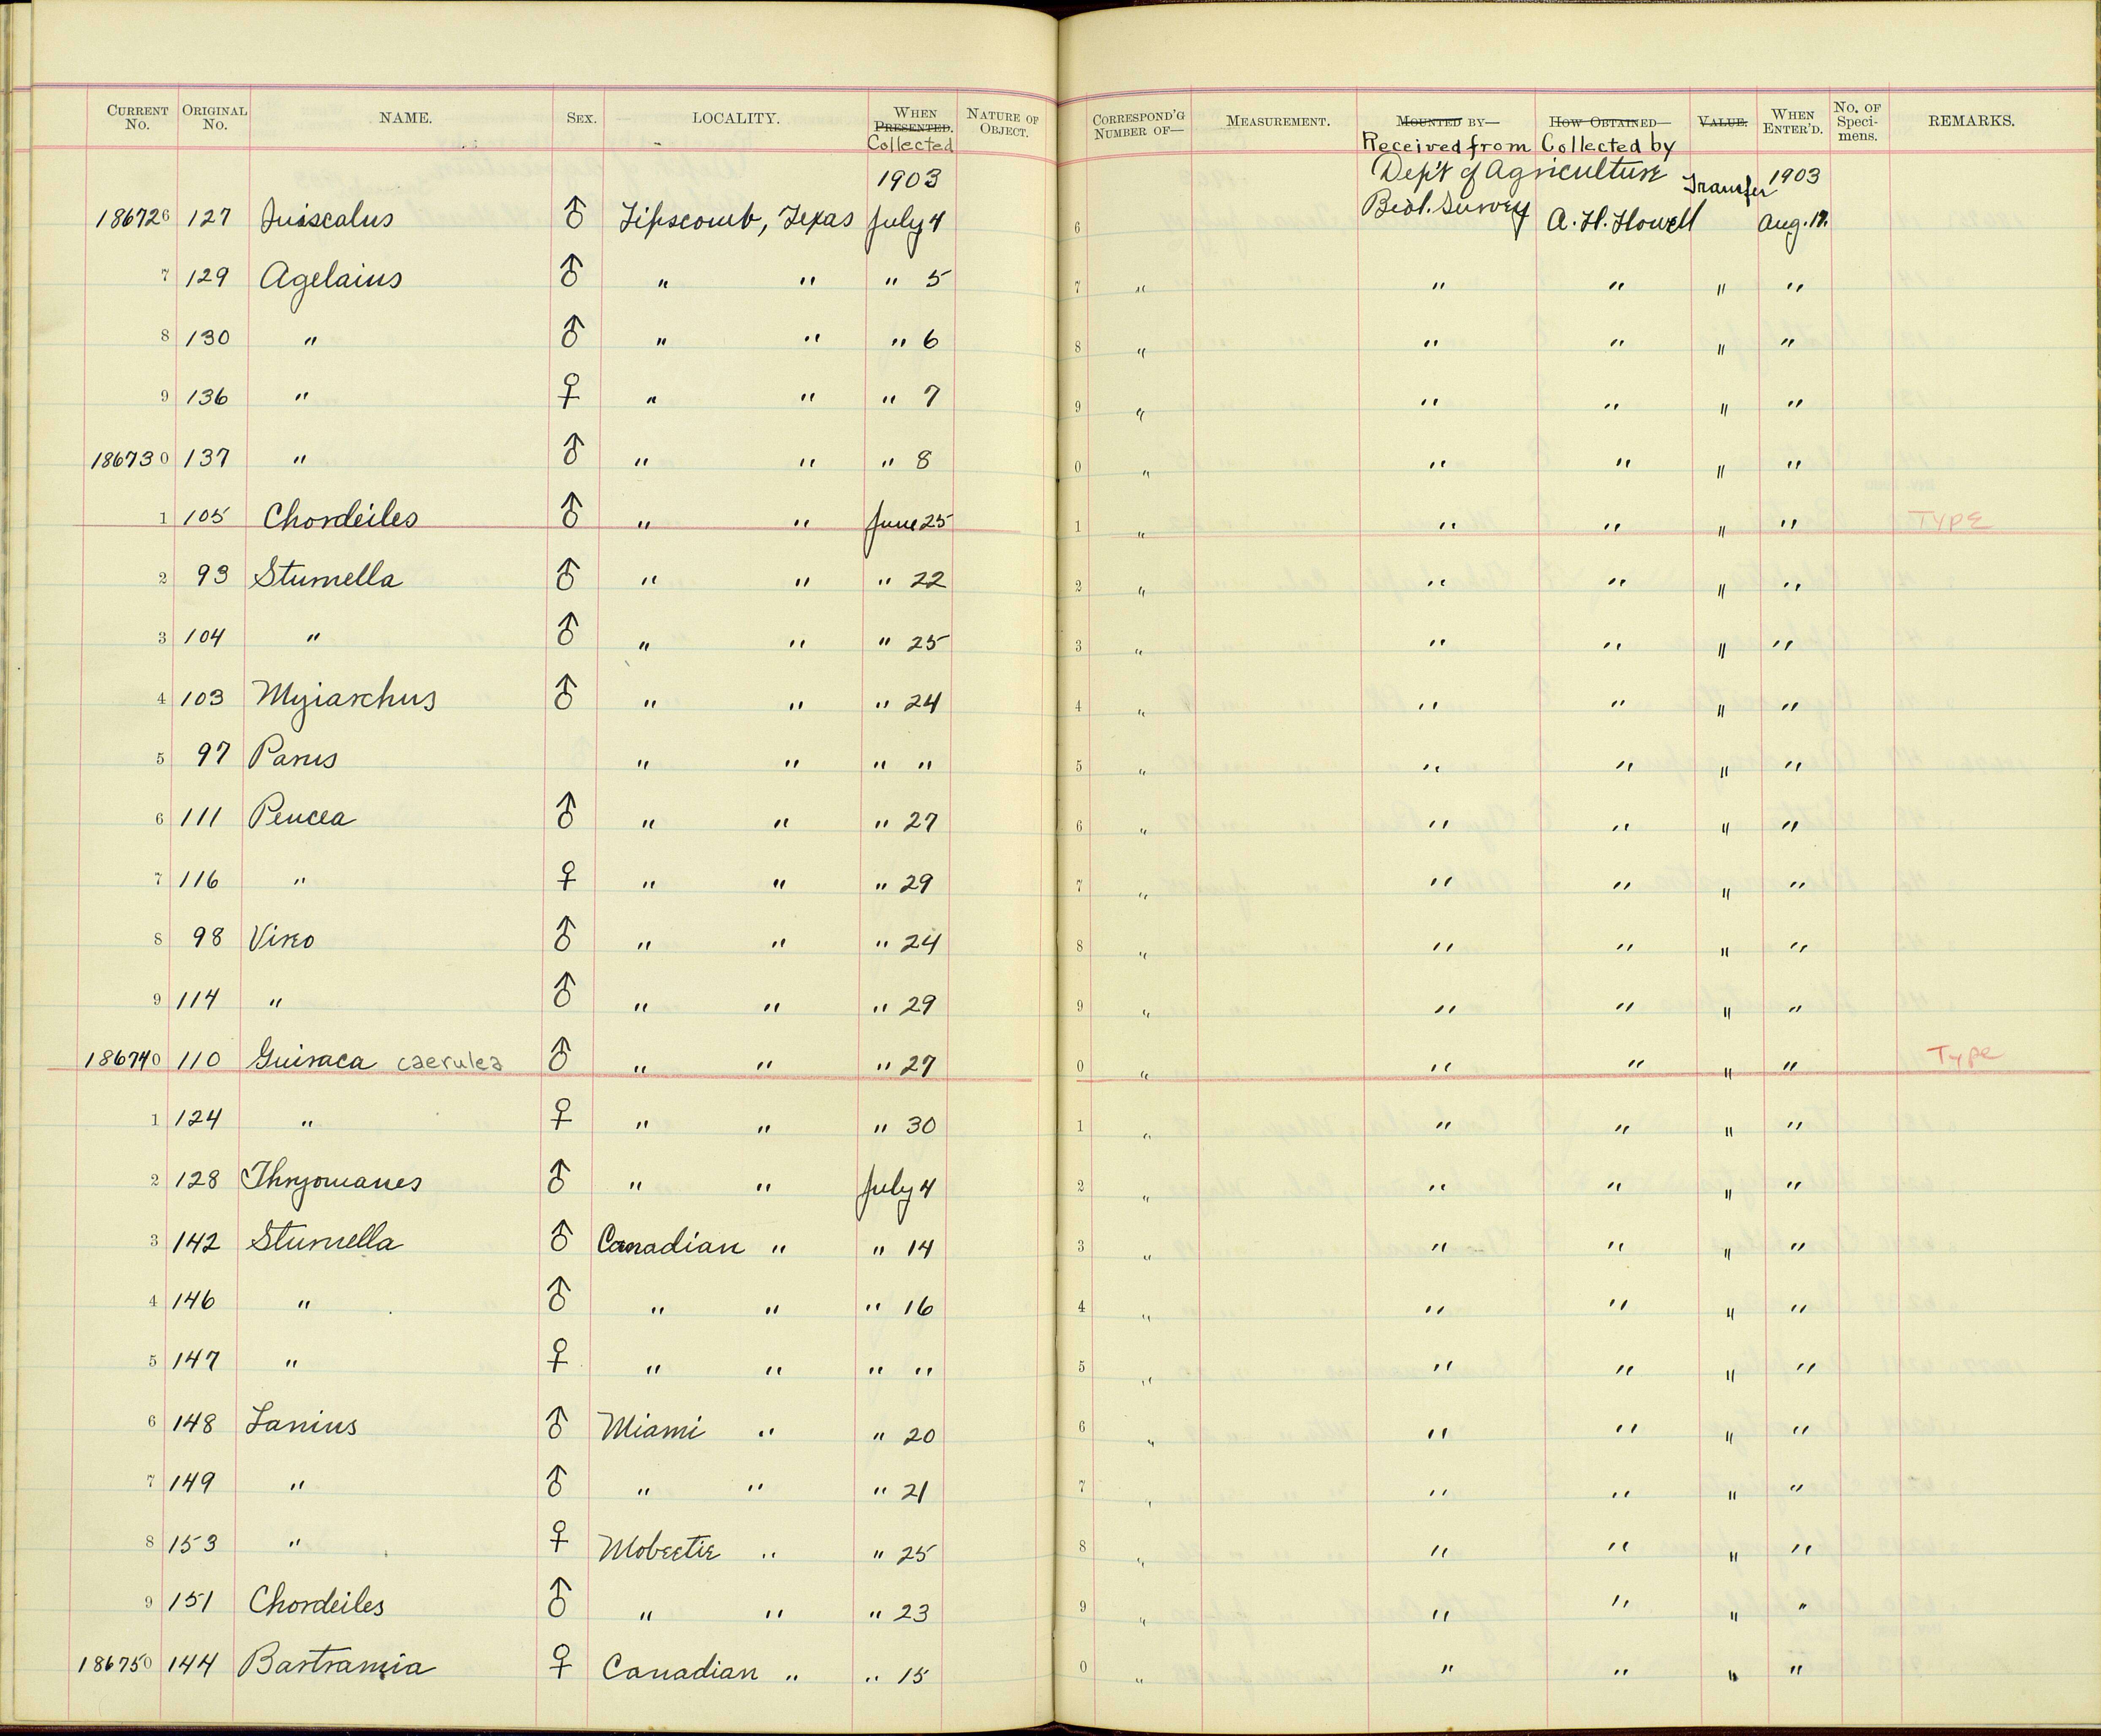 CURRENT No. ORIGINAL No. NAME. SEX. LOCALITY. WHEN PRESENTED. Collected NATURE OF OBJECT. CORRESPOND'G NUMBER OF— MEASUREMENT. MOUNTED BY— Received from HOW OBTAINED— Collected by VALUE. WHEN ENTER'D. No. OF Speci-mens. REMARKS.
1903 Dep't of Agriculture Transfer 1903
186726 127 Quiscalus ♂ Lipscomb, Texas July 4 6 Biol. Survey A. H. Howell Aug. 17.
7 129 Agelaius ♂ " " " 5 7 " " " " "
8 130 " ♂ " " " 6 8 " " " " "
9 136 " ♀ " " " 7 9 " " " " "
186730 137 " ♂ " " " 8 0 " " " " "
1 105 Chordeiles ♂ " " June 25 1 " " " " " TYPE
2 93 Sturnella ♂ " " " 22 2 " " " " "
3 104 " ♂ " " " 25 3 " " " " "
4 103 Myiarchus ♂ " " " 24 4 " " " " "
5 97 Parus " " " " 5 " " " " "
6 111 Peucea ♂ " " " 27 6 " " " " "
7 116 " ♀ " " " 29 7 " " " " "
8 98 Vireo ♂ " " " 24 8 " " " " "
9 114 " ♂ " " " 29 9 " " " " "
186740 110 Guiraca caerulea ♂ " " " 27 0 " " " " " Type
1 124 " ♀ " " " 30 1 " " " " "
2 128 Thryomanes ♂ " " July 4 2 " " " " "
3 142 Sturnella ♂ Canadian " " 14 3 " " " " "
4 146 " ♂ " " " 16 4 " " " " "
5 147 " ♀ " " " " 5 " " " " "
6 148 Lanius ♂ Miami " " 20 6 " " " " "
7 149 " ♂ " " " 21 7 " " " " "
8 153 " ♀ Mobeetie " " 25 8 " " " " "
9 151 Chordeiles ♂ " " " 23 9 " " " " "
186750 144 Bartramia ♀ Canadian " " 15 0 " " " " "